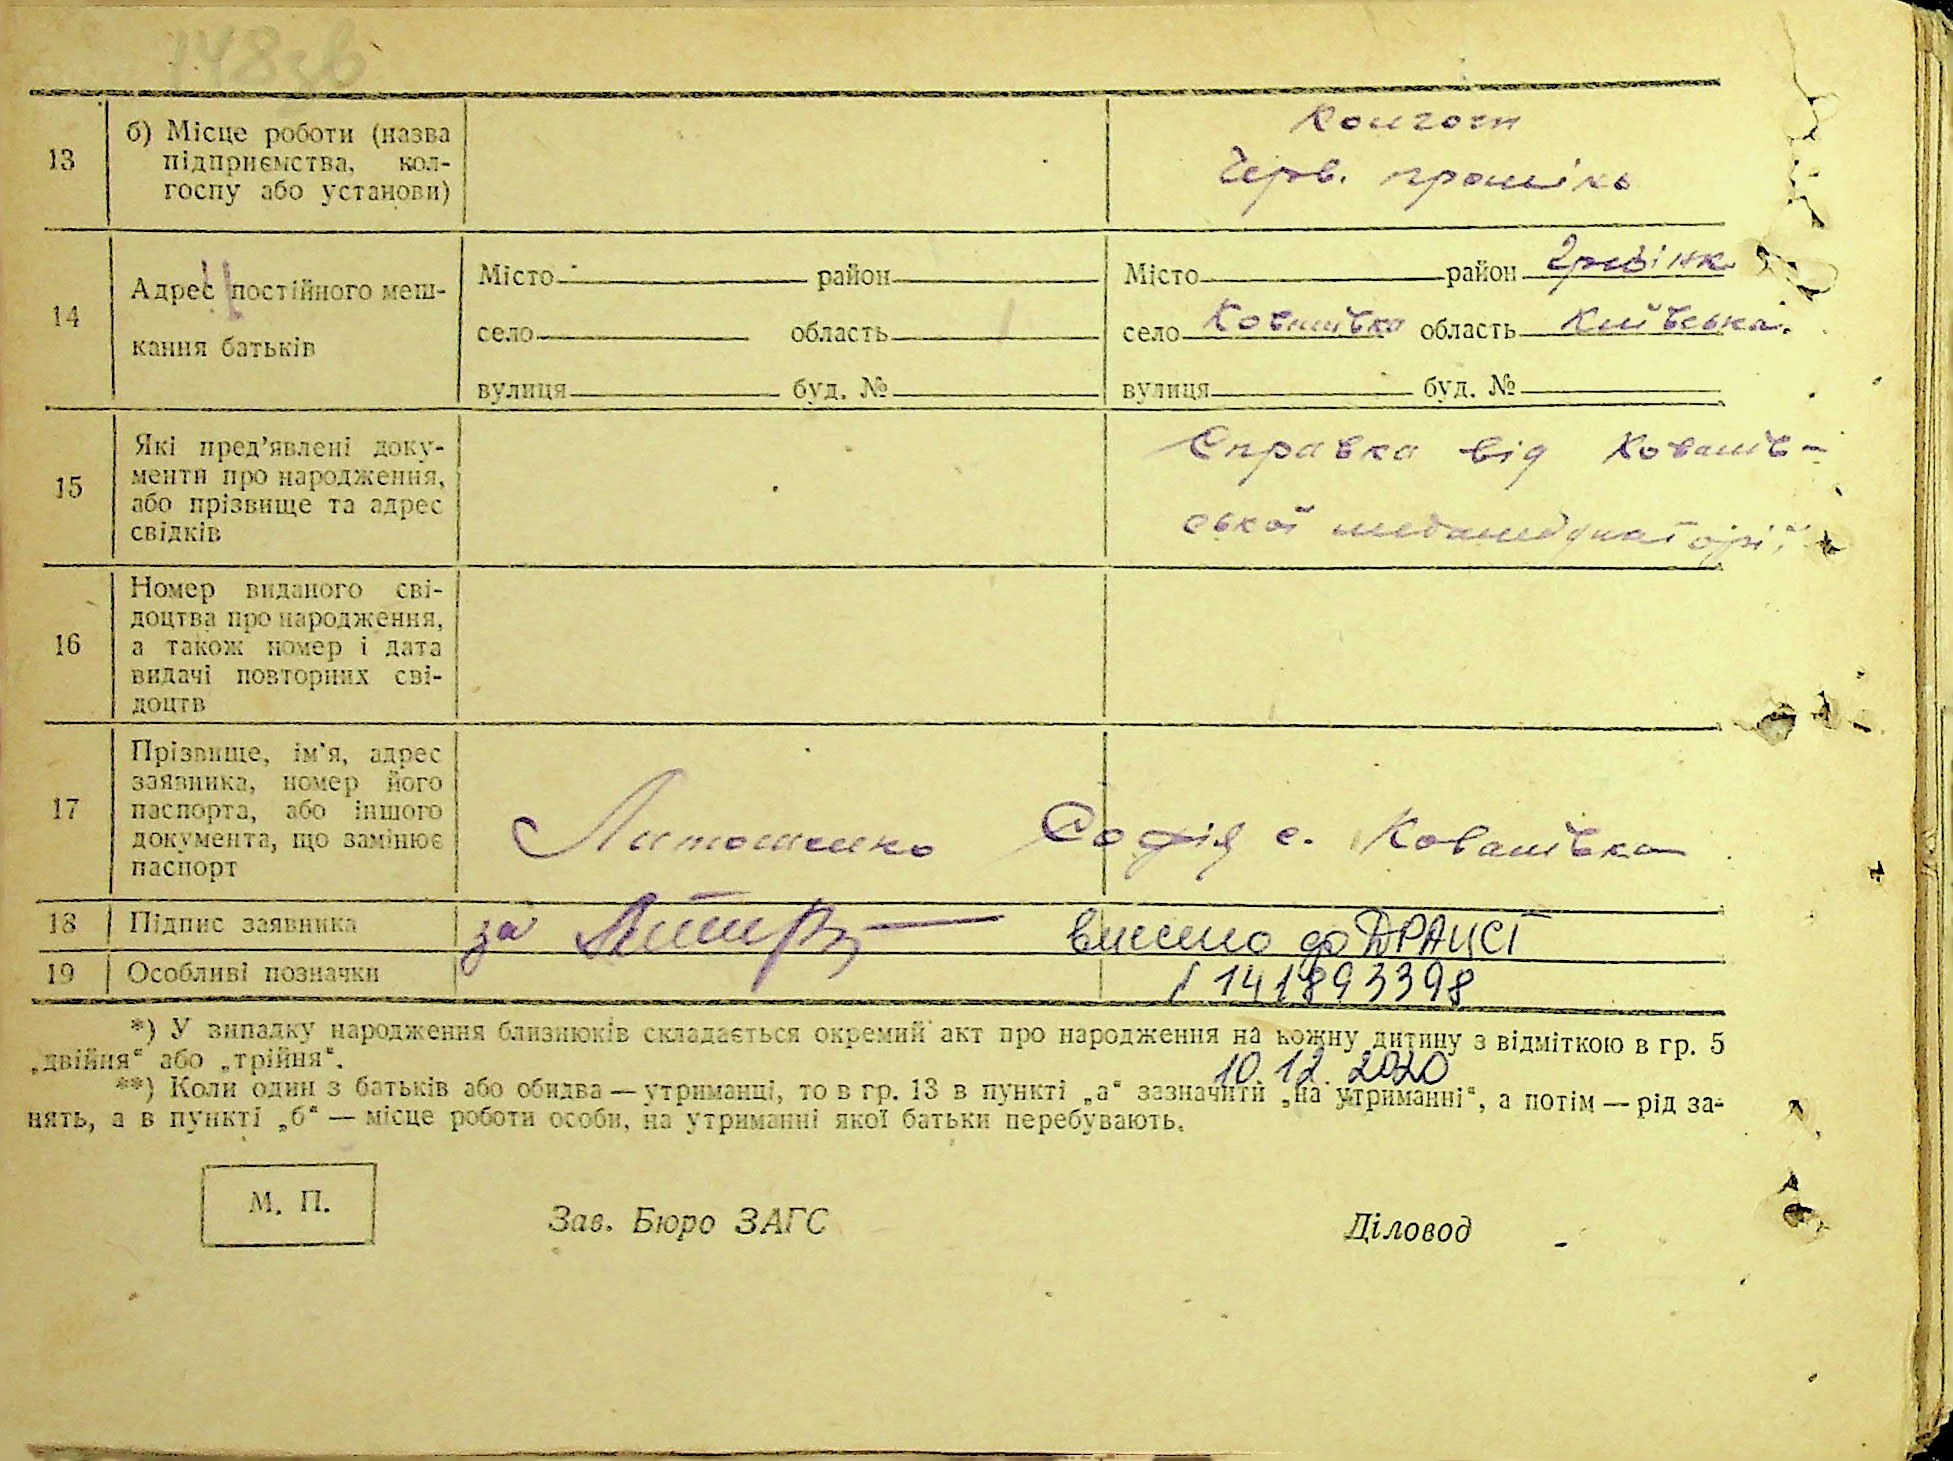 148зв
13
б) Місце роботи (назва
підприємства, кол-
госпу або установи)
Колгосп
Черв. промінь
14
Адрес постійного меш-
кання батьків
Місто район
село область
вулиця буд. №
Місто район Гребінк.
село Ковалівка область Київська.
вулиця буд. №
15
Які пред'явлені доку-
менти про народження,
або прізвище та адрес
свідків
Справка від Ковалів-
ської
16
Номер виданого сві-
доцтва про народження,
а також номер і дата
видачі повторних сві-
доцтв
17
Прізвище, ім'я, адрес
заявника, номер його
паспорта, або іншого
документа, що замінює
паспорт
Литошенко Софія с. Ковалівка
18 Підпис заявника
за
внесено до ДРАЦСГ
19 Особливі позначки
141893398
*) У випадку народження близнюків складається окремий акт про народження на кожну дитину з відміткою в гр. 5
„двійня" або „трійня".
10.12.2020
**) Коли один з батьків або обидва — утриманці, то в гр. 13 в пункті „а" зазначити „на утриманні", а потім — рід за-
нять, а в пункті „б" — місце роботи особи, на утриманні якої батьки перебувають.
М. П.
Зав. Бюро ЗАГС
Діловод